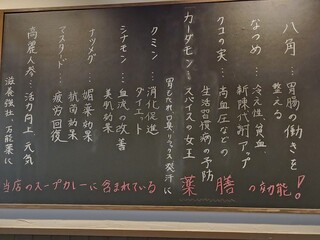 八角…胃腸の働きを
整える
なつめ…冷え性、貧血、
新陳代謝アップ
クコの実…高血圧などの
生活習慣病の予防
カーダモン…スパイスの女王
胃もたれ、口臭、リラックス、発汗に
クミン…消化促進
ダイエット
シナモン…血流の改善
美肌効果
ナツメグ…媚薬効果
抗菌効果
マスタード…疲労回復
高麗人参…活力向上、元気
滋養強壮、万能薬に
当店のスープカレーに含まれている
薬膳の効能!